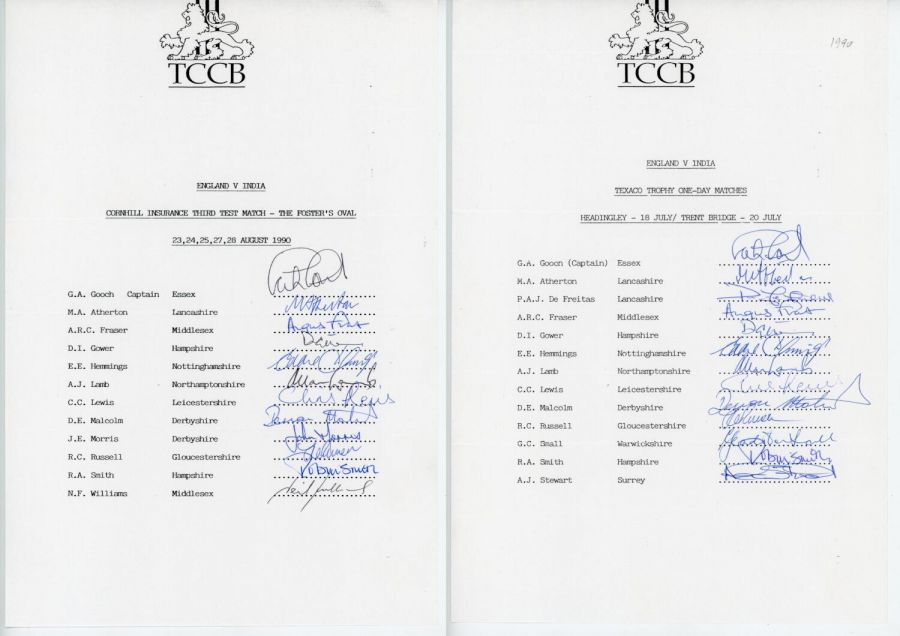 TCCB
ENGLAND V INDIA
CORNHILL INSURANCE THIRD TEST MATCH - THE FOSTER'S OVAL
23,24,25,27,28 AUGUST 1990
G.A. Gooch Captain Essex
M.A. Atherton Lancashire M Atherton
A.R.C. Fraser Middlesex Angus Fraser
D.I. Gower Hampshire
E.E. Hemmings Nottinghamshire
A.J. Lamb Northamptonshire Allan Lamb
C.C. Lewis Leicestershire Chris Lewis
D.E. Malcolm Derbyshire Devon Malcolm
J.E. Morris Derbyshire John Morris
R.C. Russell Gloucestershire
R.A. Smith Hampshire Robin Smith
N.F. Williams Middlesex
TCCB
1990
ENGLAND V INDIA
TEXACO TROPHY ONE-DAY MATCHES
HEADINGLEY - 18 JULY/ TRENT BRIDGE - 20 JULY
G.A. Gooch (Captain) Essex
M.A. Atherton Lancashire
P.A.J. De Freitas Lancashire
A.R.C. Fraser Middlesex Angus Fraser
D.I. Gower Hampshire
E.E. Hemmings Nottinghamshire
A.J. Lamb Northamptonshire Allan Lamb
C.C. Lewis Leicestershire Chris Lewis
D.E. Malcolm Derbyshire Devon Malcolm
R.C. Russell Gloucestershire
G.C. Small Warwickshire
R.A. Smith Hampshire Robin Smith
A.J. Stewart Surrey